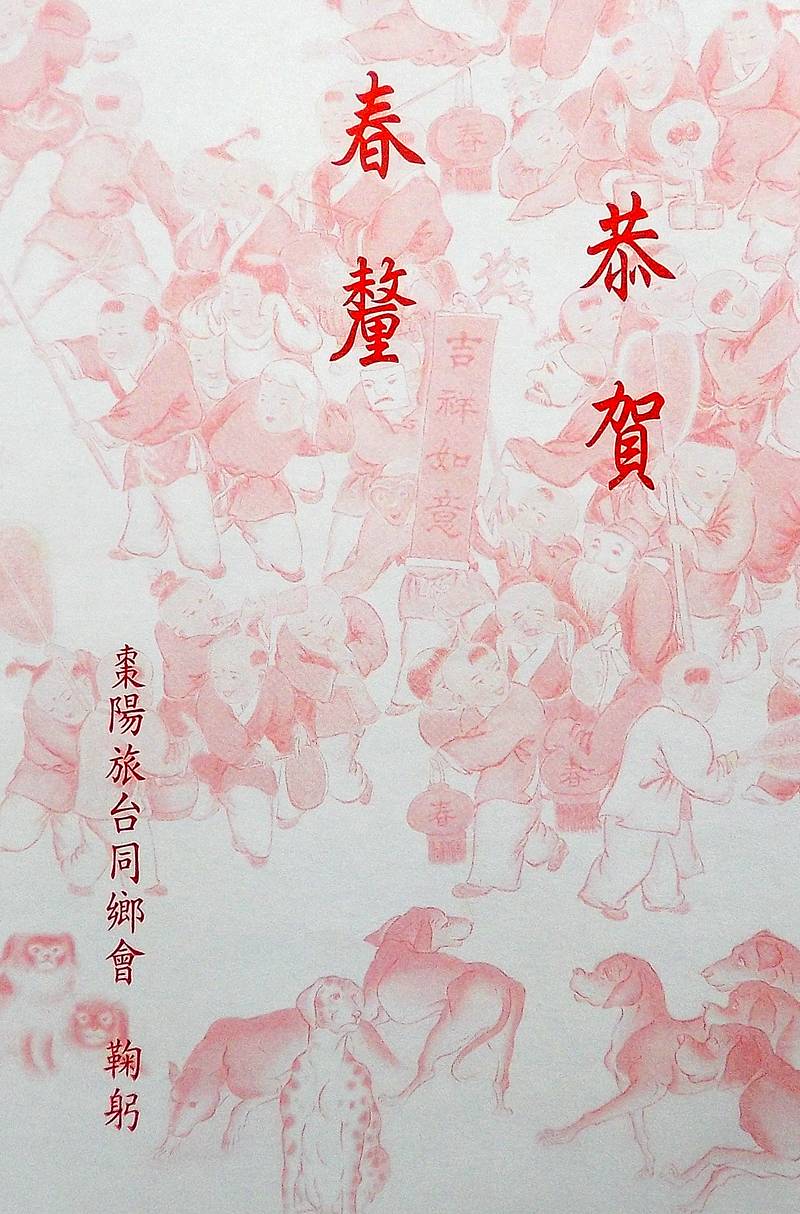 恭賀
春釐
棗陽旅台同鄉會 鞠躬
吉祥如意
春
春
春